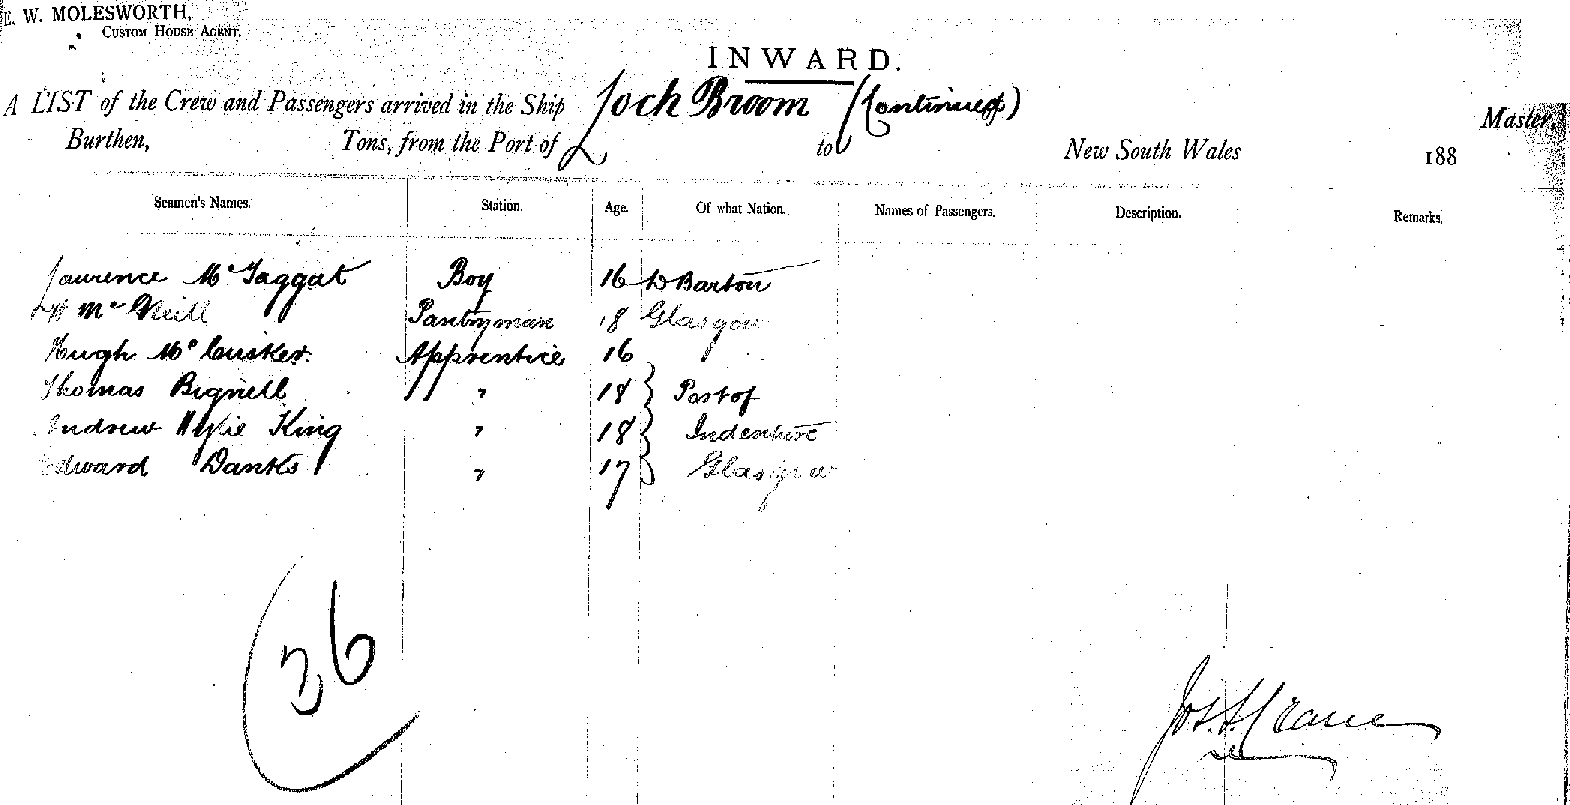 W. MOLESWORTH,
CUSTOM HOUSE AGENT.
INWARD.
A LIST of the Crew and Passengers arrived in the Ship Loch Broom (Continued) Master,
Burthen, Tons, from the Port of to New South Wales 188
Seamen's Names. Station. Age. Of what Nation. Names of Passengers. Description. Remarks.
Laurence McTaggat Boy 16 D Barton
McNeill Pantryman 18 Glasgow
Hugh McCusker. Apprentice 16
Thomas Bignell " 18 Port of
Andrew Wylie King " 18 Indenture
Edward Danks " 17 Glasgow
36
Jos. A. Crane